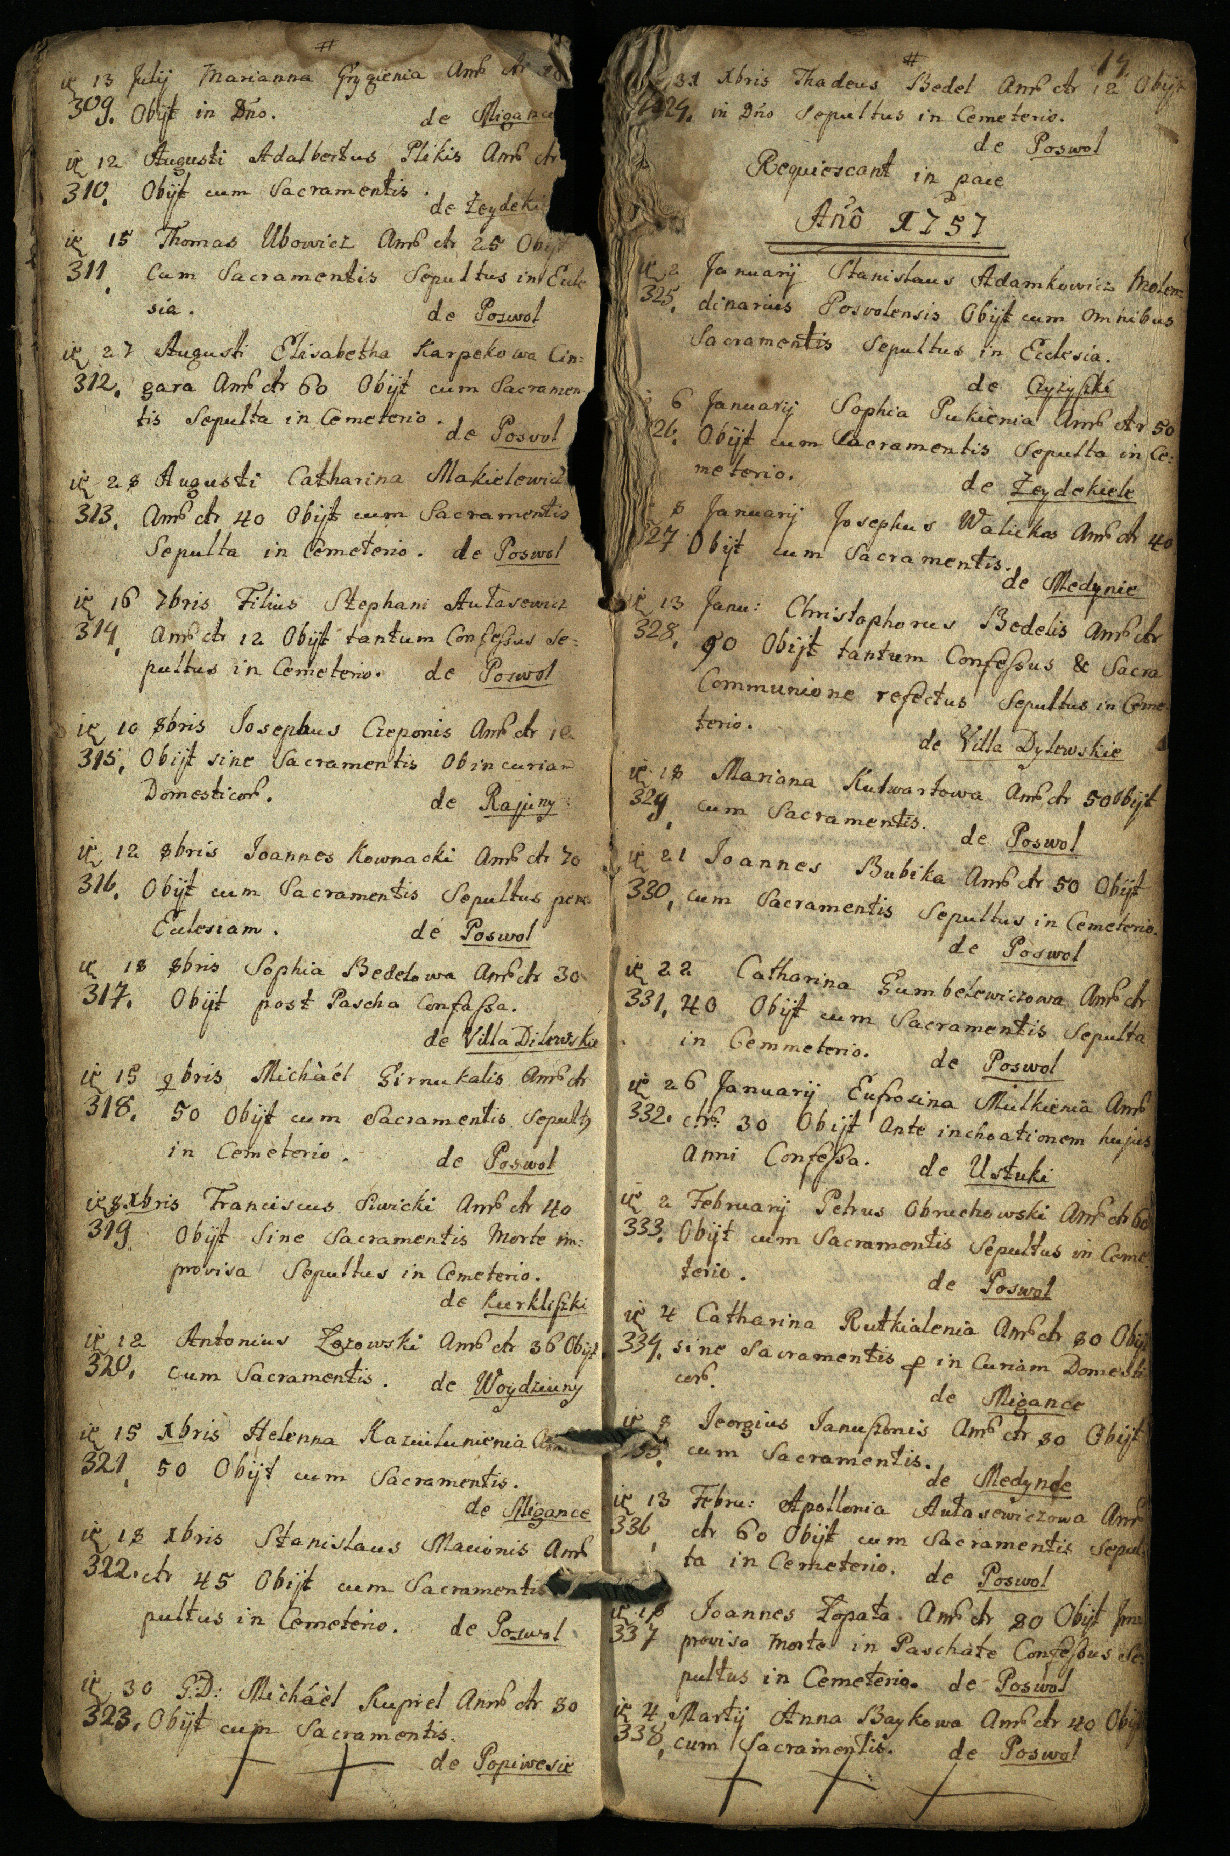 #
13 Julij Marianna Grygienia Ann ctr
309. Obijt in Dño. de Migance
12 Augusti Adalbertus Plikis Ann ctr
310. Obijt cum Sacramentis.
de Zeydeki
15 Thomas Ubowicz Ann ctr 25 Obijt
311. Cum Sacramentis Sepultus in Ecle
sia. de Poswol
27 Augusti Elisabetha Karpekowa Cin:
312. gara Ann ctr 60 Obijt cum Sacramen
tis Sepulta in Cemeterio.
de Poswol
28 Augusti Catharina Makielewicz
313. Ann ctr 40 Obijt cum Sacramentis
Sepulta in Cemeterio. de Poswol
16 7bris Filius Stephani Autasewicz
314. Ann ctr 12 Obijt tantum Confessus Se:
pultus in Cemeterio. de Poswol
10 8bris Josephus Czeponis Ann ctr
315. Obijt sine Sacramentis Ob incuriam
Domesticor. de Rajuny
12 8bris Joannes Kownacki Ann ctr 70
316. Obijt cum Sacramentis Sepultus penes
Eclesiam. de Poswol
18 8bris Sophia Bedelowa Ann ctr 30
317. Obijt post Pascha Confessa.
de Villa Dilewskie
15 9bris Michàél Girnukalis Ann ctr
318. 50 Obijt cum Sacramentis Sepult9
in Cemeterio. de Poswol
8 Xbris Franciscus Siwicki Ann ctr 40
319 Obijt Sine Sacramentis Morte im:
provisa Sepultus in Cemeterio.
de Kurkliszki
12 Antonius Zozowski Ann ctr 36 Obijt
320. cum Sacramentis. de Woydziuny
15 Xbris Helenna Kazuilunienia
321. 50 Obijt cum Sacramentis.
de Migance
18 Xbris Stanislaus Macionis Ann
322. ctr 45 Obijt cum Sacramentis
pultus in Cemeterio. de Poswol
30 G:D: Michàél Kupiel Ann ctr 80
323. Obijt cum Sacramentis.
de Popiwesie
# 19.
31 Xbris Thadeus Bedel Ann ctr 12 Obijt
324. in Dño Sepultus in Cemeterio.
de Poswol
Requiescant in pace
Año 1757
2 Januarij Stanislaus Adamkowicz Molen:
325. dinarius Posvolensis Obijt cum omnibus
Sacramentis Sepultus in Eclesia.
de Czyzyszki
6 Januarij Sophia Pukienia Ann ctr 50
326. Obijt cum Sacramentis Sepulta in Ce:
meterio. de Zeydekiele
8 Januarij Josephus Walickas Ann ctr 40
327 Obijt cum Sacramentis.
de Medynie
13 Janu: Christophorus Bedelis Ann ctr
328. 90 Obijt tantum Confessus & Sacra
Communione refectus Sepultus in Ceme
terio. de Villa Dylewskie
18 Mariana Kutwartowa Ann ctr 50 Obijt
329. cum Sacramentis.
de Poswol
21 Joannes Bubika Ann ctr 50 Obijt
330. cum Sacramentis Sepultus in Cemeterio.
de Poswol
22 Catharina Gumbelewiczowa Ann ctr
331. 40 Obijt cum Sacramentis Sepulta
in Cemmeterio. de Poswol
26 Januarij Eufrosina Mulkienia Ann
332. ctr: 30 Obijt Ante inchoationem hujus
Anni Confessa. de Ustuki
2 Februarij Petrus Obruchowski Ann ctr 60
333. Obijt cum Sacramentis Sepultus in Ceme
terio. de Poswol
4 Catharina Rutkialenia Ann ctr 80 Obijt
334. sine Sacramentis p in Curiam Domesti
cor. de Migance
8 Jeorgius Januszonis Ann ctr 30 Obijt
335. cum Sacramentis.
de Medynde
13 Febru: Apollonia Autasewiczowa Ann
336. ctr 60 Obijt cum Sacramentis Sepul
ta in Cemeterio. de Poswol
18 Joannes Lopata Ann ctr 80 Obijt Im
337 provisa Morte in Paschate Confessus Se
pultus in Cemeterio. de Poswol
4 Martij Anna Baykowa Ann ctr 40 Obijt
338. cum Sacramentis. de Poswol